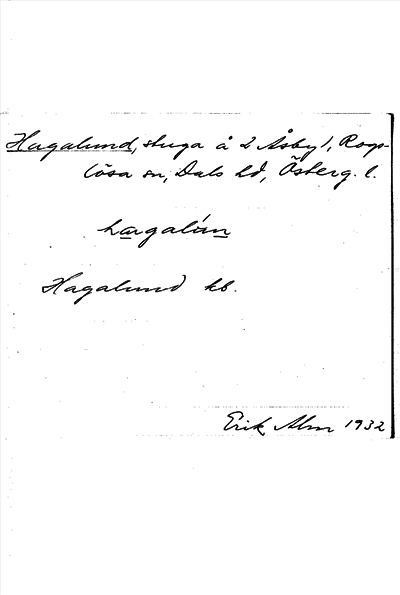 Hagalund, stuga å 2 Åsby, Rogs-
lösa sn, Dals hd, Österg. l.
hargalún
Hagalund kb.
Erik Alm 1932